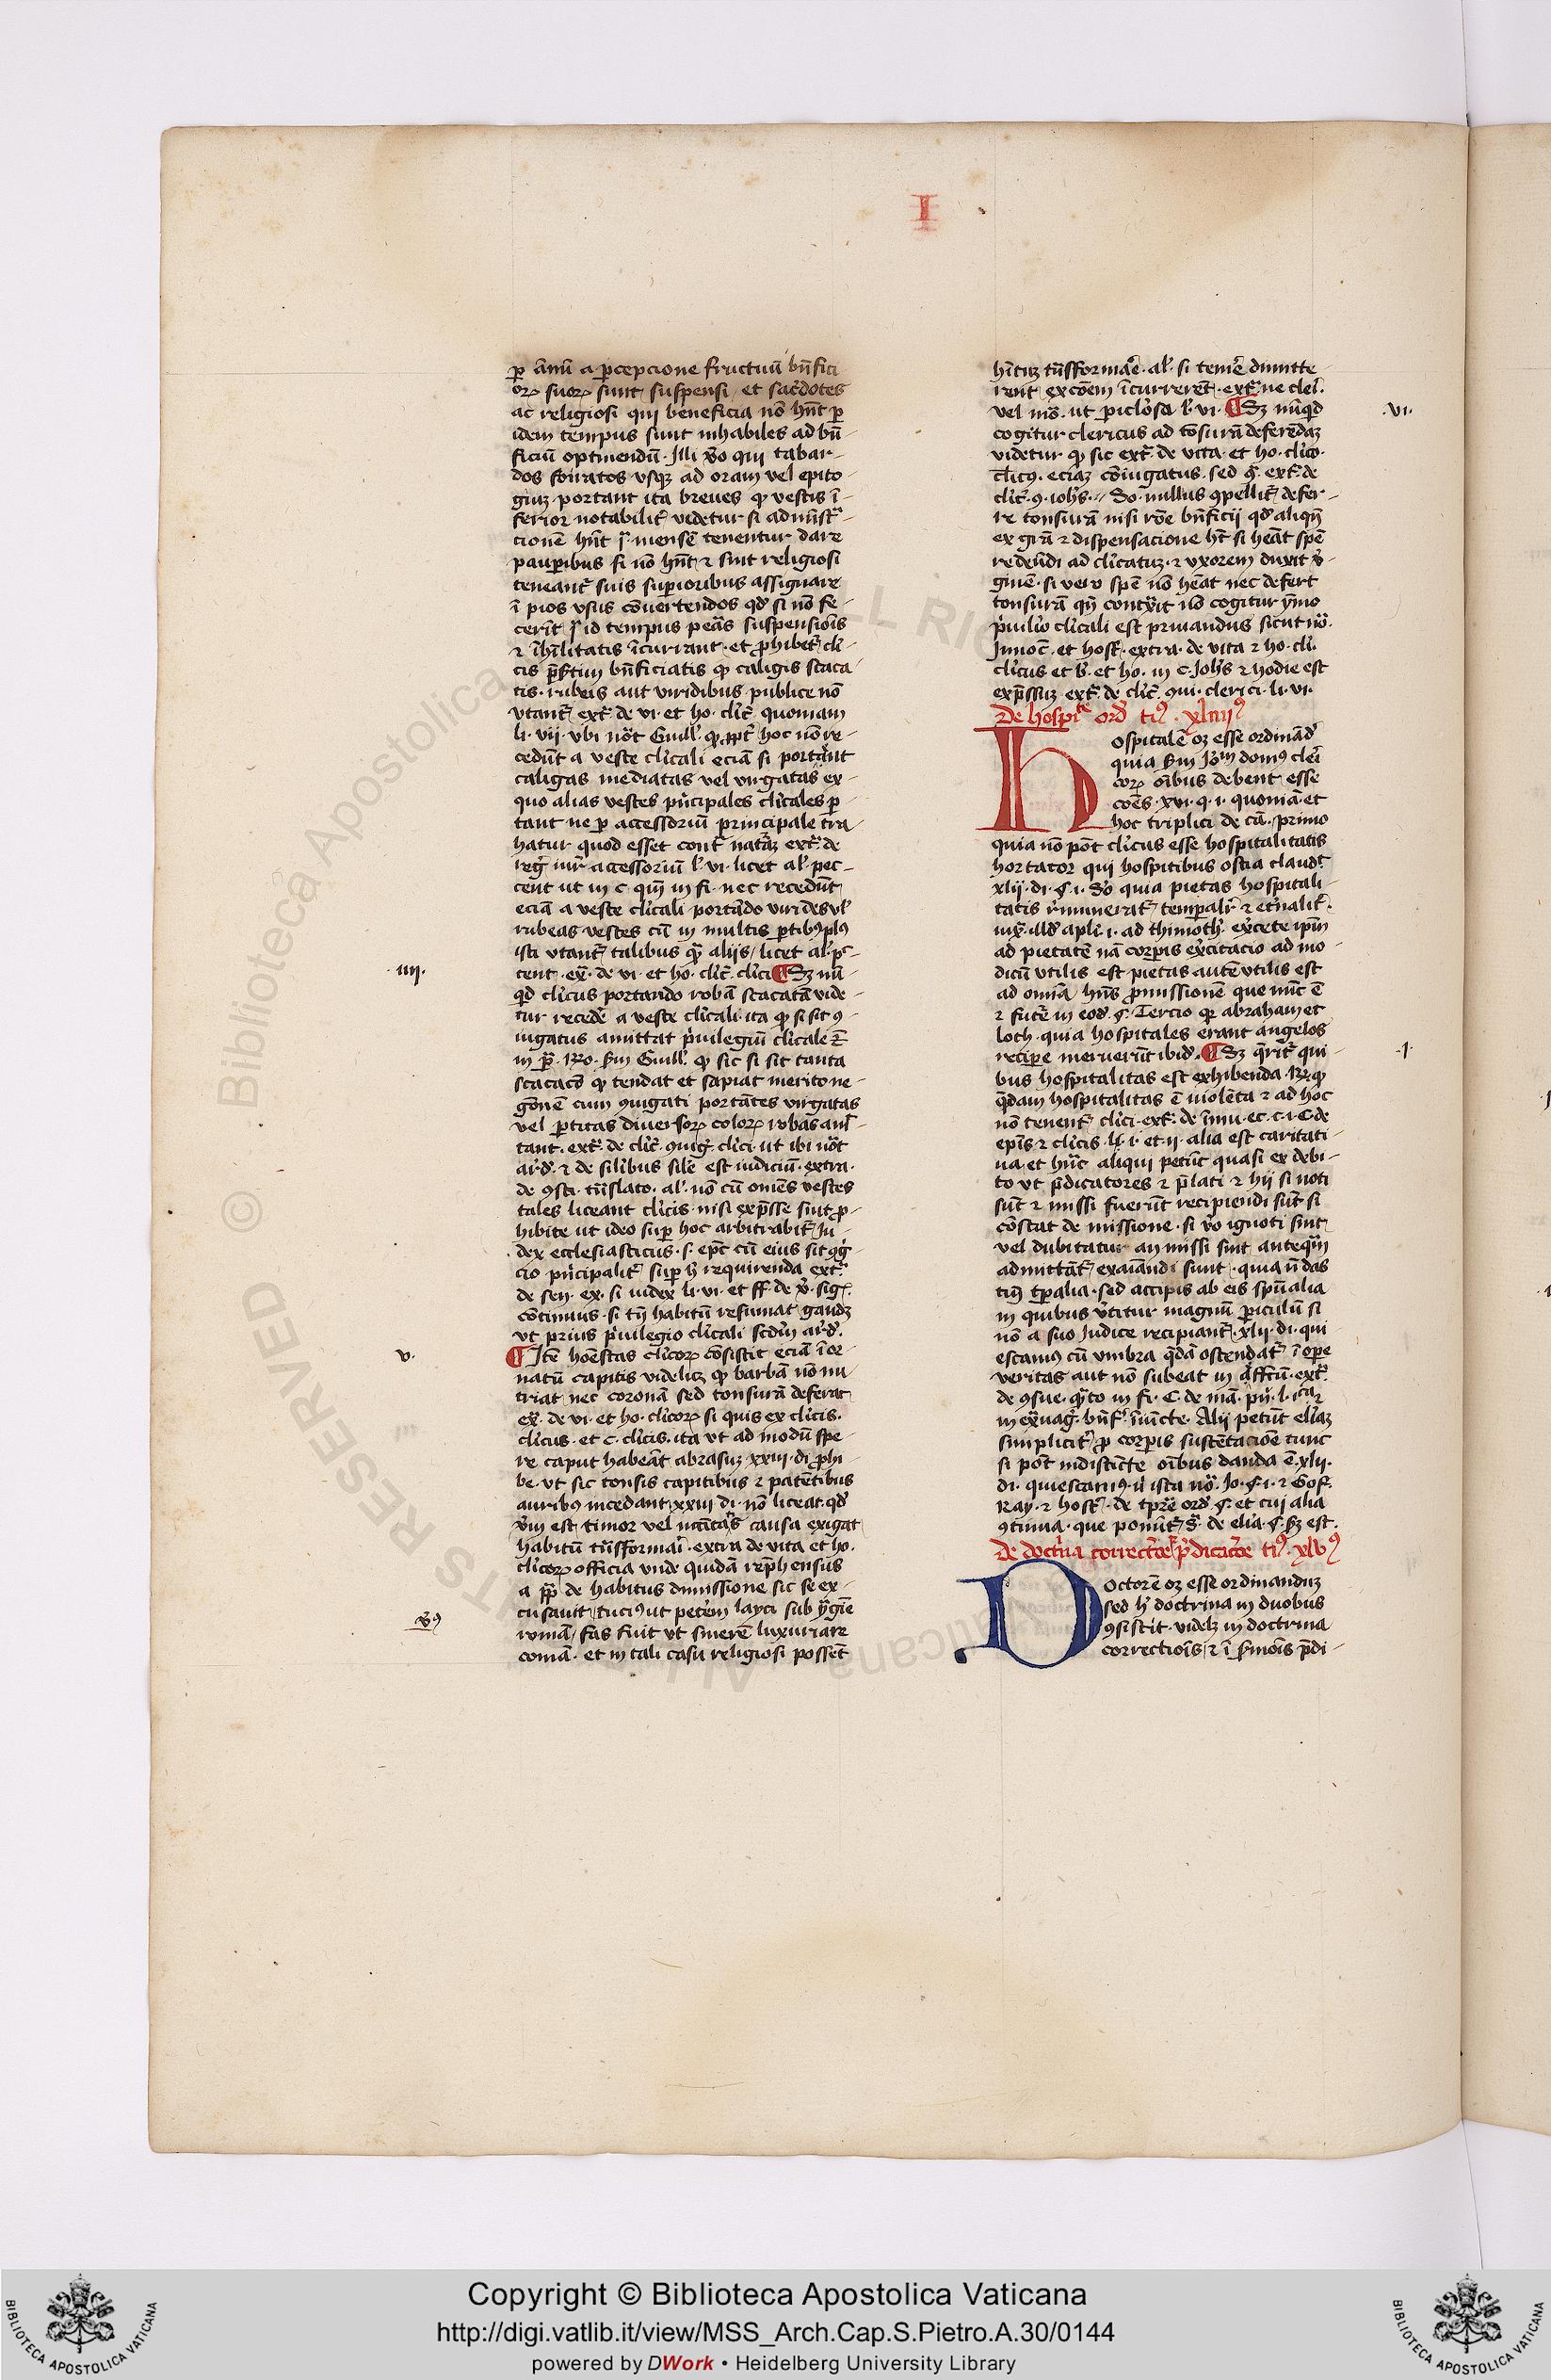 I
ꝑ annū a ꝑcepcione fructuū bn̄fici
oꝝ suoꝝ sunt suspensi et sac̄dotes
ac religiosi qui beneficia nō hn̄t ꝑ
idem tempus sunt inhabiles ad bn̄
ficiū optinendū · Illi v̄o qui tabar
dos foderatos vsqꝫ ad oram vel epito
giuꝫ portant ita breues ꝙ vestis ī
ferior notabilit̄ videtur si adm̄istr̄
cionē hn̄t mensē tenentur dare
pauꝑibus si nō hn̄t ⁊ sint religiosi
teneant̄ suis suꝑioribus assignare
ī pios vsus cōuertendos qd̛ si nō fe
cerīt id tempus penas suspensiōis
⁊ inhabilitatis īcurrant · et ꝓhibet̄ cl̄i
cis bn̄ficiatis ꝙ caligis scaca
tis · rubeis aut viridibus publice nō
vtant̄ ext̄ de vi · et ho · cl̄ic̄ quoniam
li · vii · vbi not̄ Guill̄ ꝙ ꝓpt̄ hoc nō re
cedūt a veste cl̄icali eciā si portāt
caligas mediatas vel virgatas ex
quo alias vestes p̄ncipales cl̄icales ꝑ
tant ne ꝑ accessoriū principale tra
hatur quod esset cont̄ natāꝫ ext̄ de
reḡ iur̄ accessoriū l̄ vi · licet al̄ pec
cent ut in c · qm̄ in fi · nec recedūt
eciā a veste cl̄icali portādo virides vl̄
rubeas vestes cū in multis ꝑtibꝰ plꝰ
isti vtant̄ talibus qꝫ alijs / licet al̄ pc
·iiii·
cent · ex̄ · de vi · et ho · cl̄ic̄ · cl̄ici ¶ Sꝫ nū
qd̛ cl̄icus portando robā scacatā vide
tur reced̄e a veste cl̄icali ita ꝙ si sit ꝯ
iugatus amittat p̄uilegiū cl̄icale
in Ro · sm̄ Guill̄ · ꝙ sic si sit tanta
scacacō ꝙ tendat et sapiat merito ne
gōnē cum ꝯiugati portātes virgatas
vel ꝑtitas diuersoꝝ coloꝝ robas amit
tant · ext̄ · de cl̄ic̄ · ꝯiuḡ · cl̄ici · ut ibi not̄
ard̛ · ⁊ de sil̄ibus sil̄e est iudiciū · extra
de ꝯsti · tn̄slato · al̄ · nō cū omēs vestes
tales liceant cl̄icis · nisi exp̄sse sint ꝓ
hibite ut ideo suꝑ hoc arbitrabit̄ iu
dex ecclesiasticus · s · ep̄c cū eius sit coḡ
cio p̄ncipalit̄ suꝑ h̄ requirenda ext̄
de sen · ex · si iudex li · vi · et ff · de v̄ · siḡ ·
cōtinuus · si tn̄ habitū resumat gaudꝫ
vt prius p̄uilegio cl̄icali scd̄m ard̛ ·
v·
¶ Itē hoēstas cl̄icoꝝ cōsistit eciā ī or
natū capitis videlicꝫ ꝙ barbā nō nu
triat nec coronā sed tonsurā deferat
ex̄ · de vi · et ho · cl̄icoꝝ si quis ex cl̄icis ·
clicus · et c · cl̄icis · ita vt ad modū spe
re caput habeāt abrasuꝫ · xxiii · di · ꝓhi
be · vt sic tonsis capitibus ⁊ patētibus
auribꝰ incedant · xxiii · di · nō liceat · qd̛
v̄m est timor vel causa exigat
habitū tn̄sformari · extra de vita et ho ·
cl̄icoꝝ officia vnde quidā rep̄hensus
a pp̄ de habitus dimissione sic se ex
vꝰ
cusauit / tuciꝰ ut petēm layci sub ygīe
romā / fas fuit vt sinerē luxuriare
comā · et in tali casu religiosi possēt
hītuꝫ tn̄sformar̄e · al̄ · si temer̄e dimitte
rent excōem īcurrerēt · ext̄ · ne cl̄ei ·
·vi·
vel mō · ut ꝑiclosa l̄ · vi · ¶ Sꝫ nūqd̛
cogitur clericus ad tōsurā deferēdaꝫ
videtur ꝙ sic ext̄ · de vita et ho · cl̄ico ·
cl̄icꝰ · eciaꝫ cōiugatus · sed ext̄ · de
cl̄ic̄ · ꝯ · ioh̄s · So · nullus ꝯpellit̄ defer
re tonsurā nisi rōe bn̄ficij qd̛ aliqn̄
ex gr̄a ⁊ dispensacione ht̄ si heāt spē
redeūdi ad cl̄icatuꝫ ⁊ vxorem duxit v̄
ginē · si vero spē nō heāt nec defert
tonsurā nō cogitur ymo
p̄uil̄io cl̄icali est priuandus sicut no̅ ·
Innoc̄ · et host̄ · extra · de vita ⁊ ho · cli ·
cl̄icus et b̄ · et ho · in c · Joh̄s ⁊ hodie est
exp̄ssuꝫ ext̄ · de cl̄ic̄ · ꝯiu · clerici · li · vi ·
De hospi̅te ord̄ ti⁹ · xliiii⁹
Hospitalē oꝫ esse ordinād̛
quia sm̄ Jo̅m domꝰ cleri
coꝝ oībus debent esse
coēs · xvi · q · i · quoniā · et
hoc triplici de cā · primo
quia nō pōt cl̄icus esse hospitalitatis
hortator qui hospitibus ostia claud̄t
xlij · di · ꝯ · i · So quia pietas hospitali
tatis r̄munerat̄ temꝑalit̄ ⁊ et̄nalit̄ ·
iux̄ · illd̛ apl̄i · i · ad thimoth̄ · ex̄cete ip̄m
ad pietatē nā corꝑis exercitacio ad mo
dicū vtilis est pietas autē vtilis est
ad omīa hn̄s ꝓmissionē que nūc ē
⁊ futr̄e in eod̛ · ꝯ · Tercio qꝛ abraham et
loth · quia hospitales erant angelos
·1·
reciꝑe meruerūt ibid̛ · ¶ Sꝫ q̄rit̄ qui
bus hospitalitas est exhibenda · Rꝫ · ꝙ
q̄dam hospitalitas ē violēta ⁊ ad hoc
nō tenent̄ cl̄ici · ext̄ · de īmu · ec · c · i · C · de
epīs ⁊ cl̄icis · l̄ · i · et · ij · alia est caritati
ua et hūc aliqui petūt quasi ex debi
to vt p̄dicatores ⁊ p̄lati ⁊ hij si noti
sūt ⁊ missi fuerūt recipiendi sūt si
cōstat de missione · si v̄o ignoti sint
vel dubitatur an missi sint anteqꝫ
admittāt̄ exaīandi sunt · quia n̄ das
tm̄ tꝑalia · sed accipis ab eis spūalia
in quibus v̄titur magnū ꝑiculū si
nō a suo Iudice recipiant̄ · xlij · di · qui
escamꝰ cū vmbra q̄dā ostendat̄ ī oꝑe
veritas aut nō subeat in affctū · ext̄ ·
de ꝯsue · qn̄to in fi · C · de mā · prin · l ·
in exuaḡ · bn̄f · īūcte · Alij petūt eliaꝫ
simplicit̄ ꝓ corꝑis sustētacōe tunc
si pōt indistīcte oībus danda ē · xlij ·
di · quiescamꝰ · ista no̅ · Jo · ꝯ · i · ⁊ Gof ·
Ray · ⁊ host̄ · de tꝑe ord̛ · ꝯ · et cuj alia
ꝯtinua · que ponūt̄ · de elia · ꝯ · sꝫ est ·
De doctr̄ia correctōe p̄dicatōe ti⁹ · xlv⁹
Doctorē oꝫ esse ordinanduꝫ
sed h̄ doctrina in duobus
ꝯsistit · videlꝫ in doctrina
correctiōis ⁊ ī sm̄ōis p̄di
Copyright © Biblioteca Apostolica Vaticana
http://digi.vatlib.it/view/MSS_Arch.Cap.S.Pietro.A.30/0144
powered by DWork • Heidelberg University Library
BIBLIOTECA APOSTOLICA VATICANA
BIBLIOTECA APOSTOLICA VATICANA
© Biblioteca Apostolica Vaticana ALL RIGHTS RESERVED